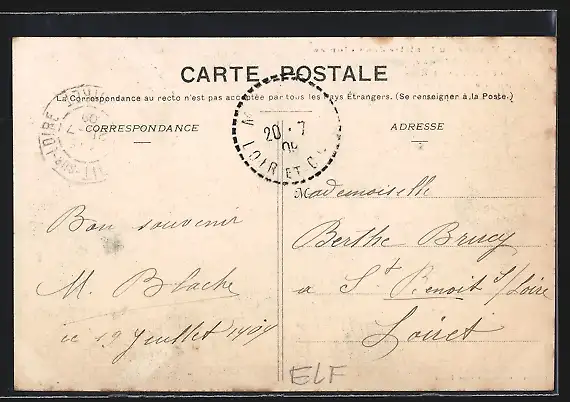 CARTE POSTALE
La Correspondance au recto n'est pas acceptée par tous les Pays Étrangers. (Se renseigner à la Poste.)
CORRESPONDANCE
ADRESSE
20 - 7
LOIR ET C
SUR-LOIRE
Mademoiselle
Berthe Brucy
a St Benoit s/Loire
Loiret
Bon souvenir
M. Blache
le 19 Juillet 1909
ELF